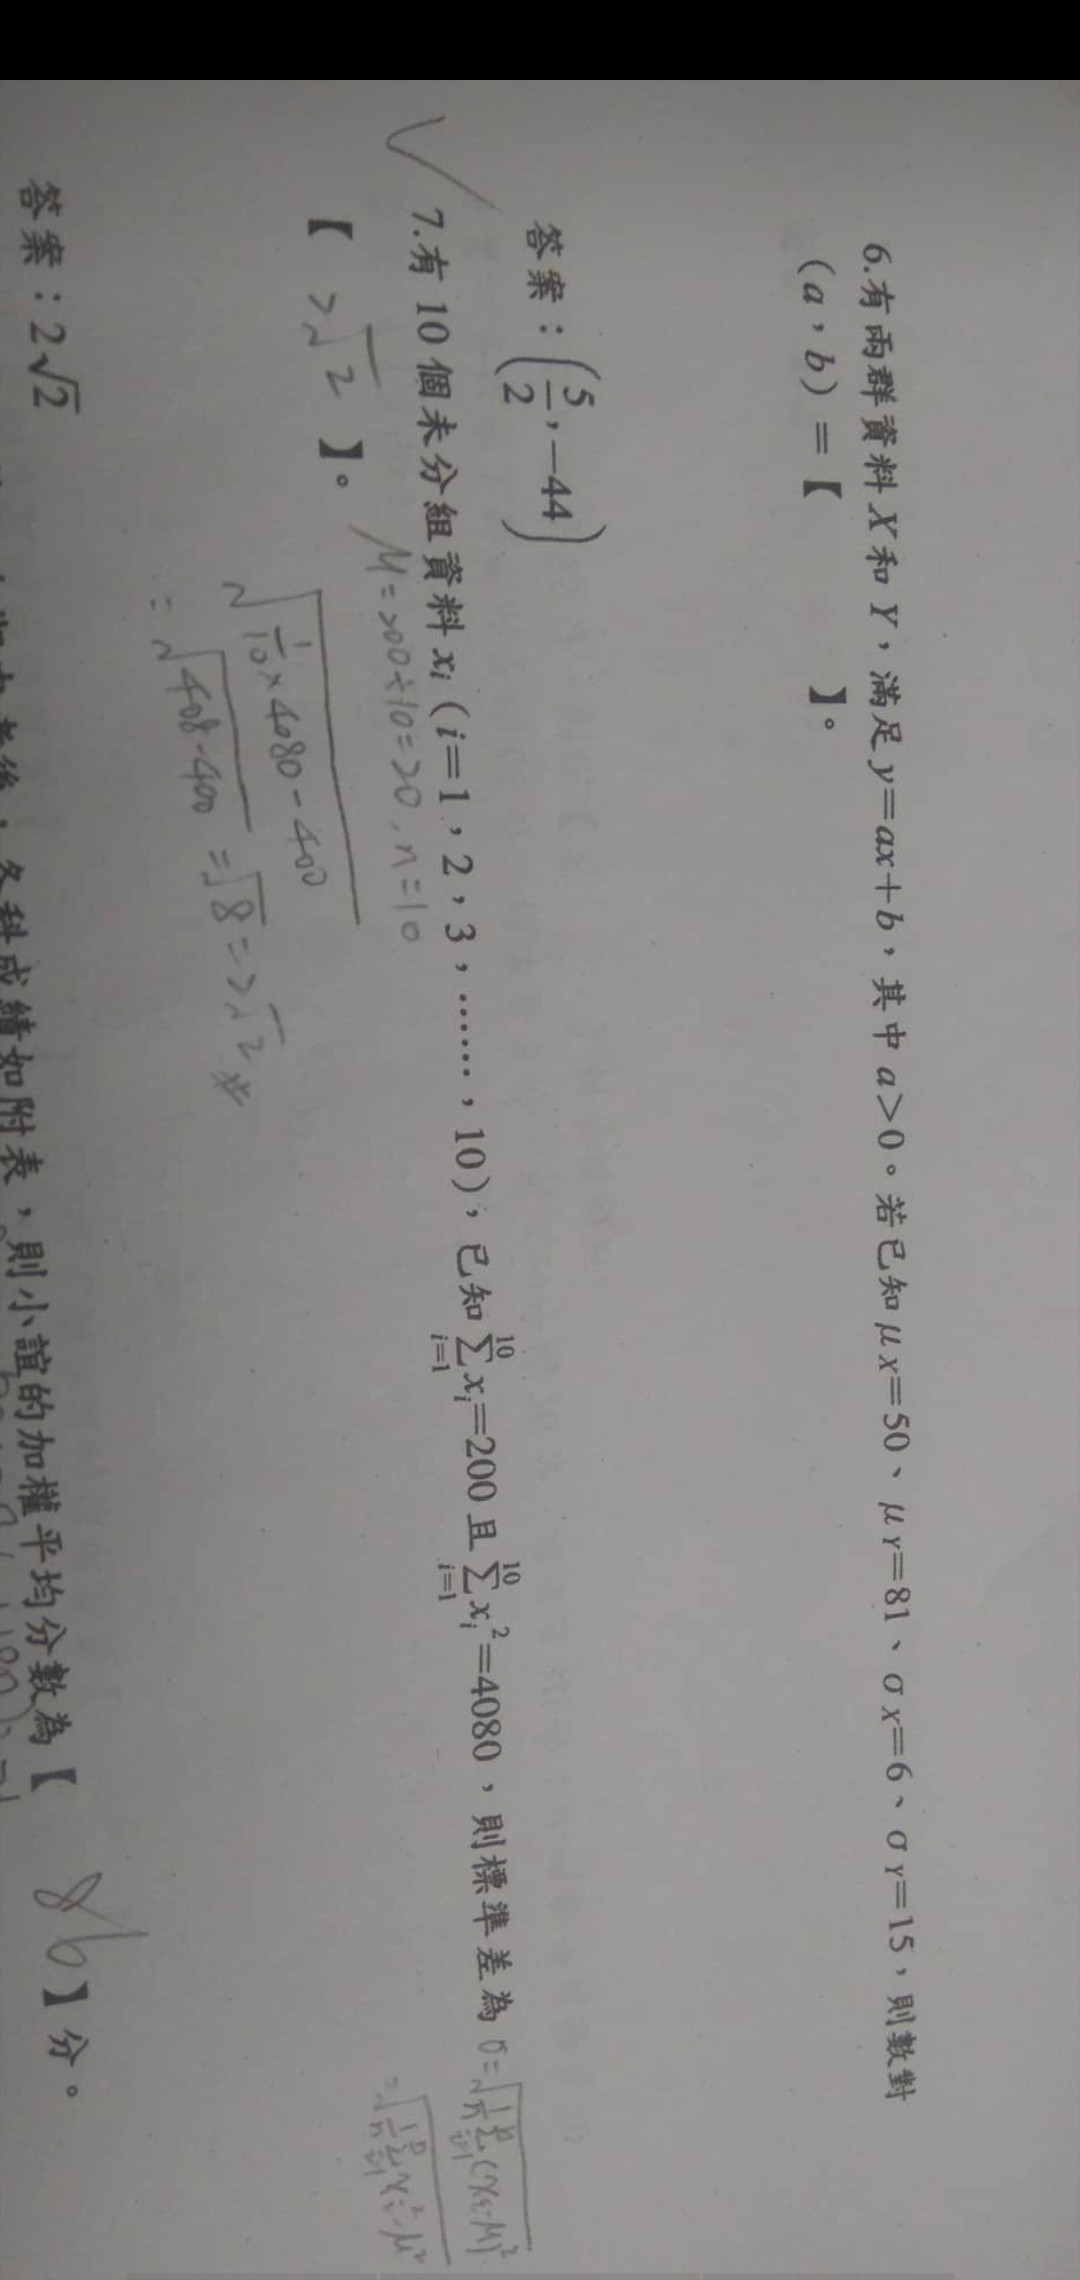 6.有兩群資料 X 和 Y，滿足 y=ax+b，其中 a>0。若已知 μX=50、μY=81、σX=6、σY=15，則數對
(a，b)=【 】。
答案：(5/2,−44)
7.有 10 個未分組資料 xi (i=1，2，3，……，10)，已知 ∑_{i=1}^{10} xi=200 且 ∑_{i=1}^{10} xi²=4080，則標準差為 σ=√(1/n ∑_{i=1}^{n} (xi-μ)²
=√(1/n ∑_{i=1}^{n} xi²-μ²
【 2√2 】。 μ=200÷10=20, n=10
√(1/10×4080-400
=√(408-400 =√8=2√2 #
答案：2√2
各科成績如附表，則小誼的加權平均分數為【 86 】分。